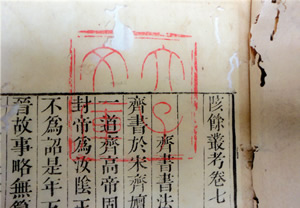 陔餘叢考卷七
齊書書法
齊書於宋齊嬗
道齊高帝固
封帝為汝陰王
不為詔是年五
晉故事略無